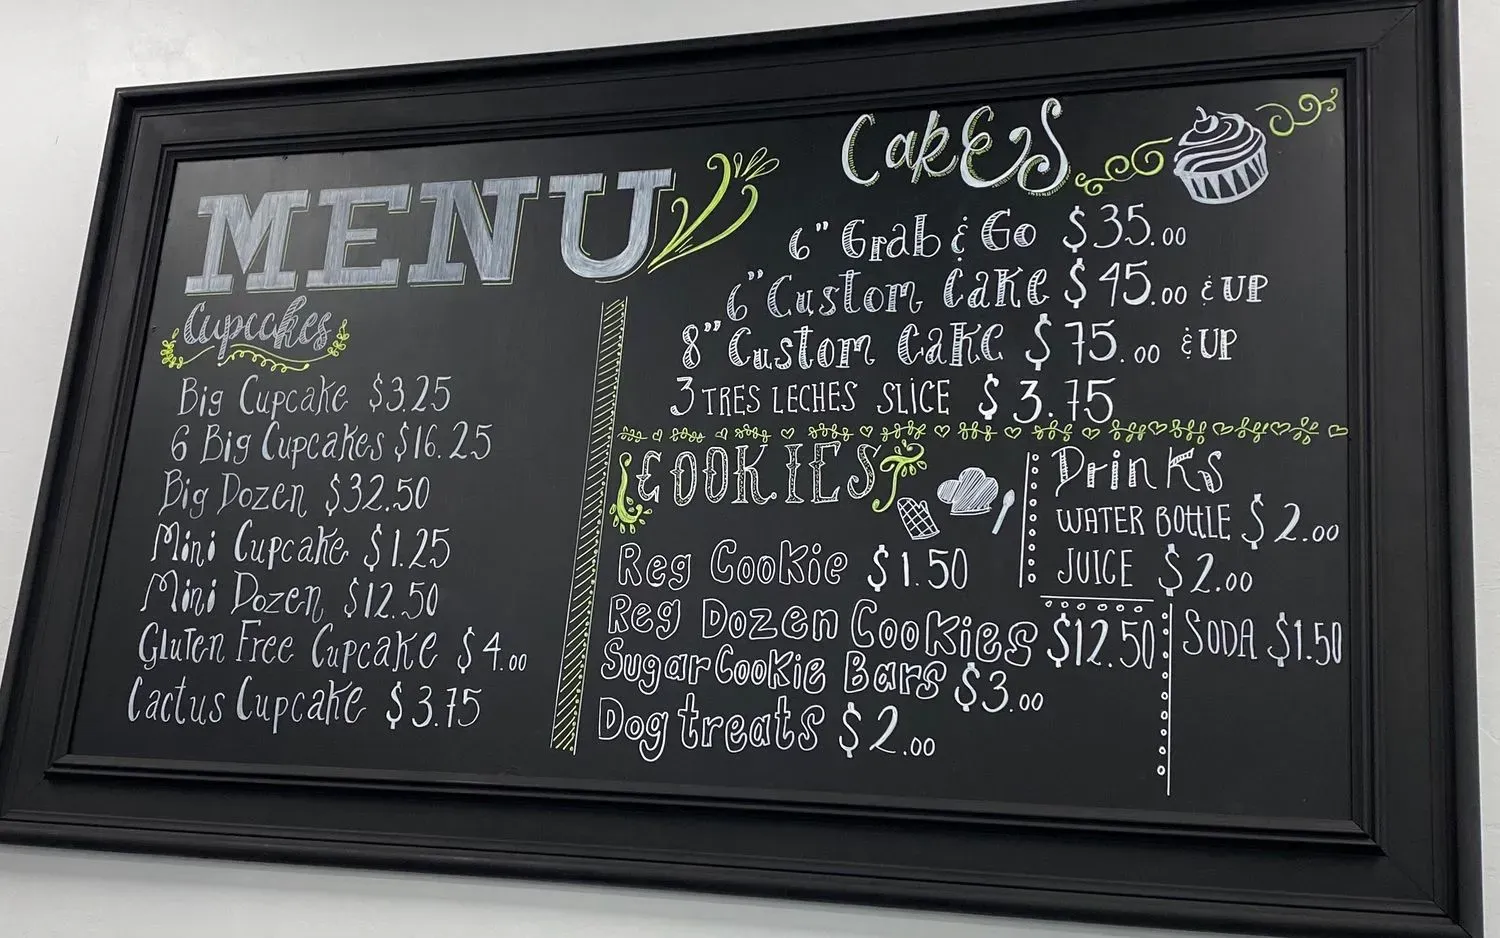 MENU
Cupcakes
Big Cupcake $3.25
6 Big Cupcakes $16.25
Big Dozen $32.50
Mini Cupcake $1.25
Mini Dozen $12.50
Gluten Free Cupcake $4.00
Cactus Cupcake $3.75
Cakes
6" Grab & Go $35.00
6" Custom Cake $45.00 & UP
8" Custom Cake $75.00 & UP
3 TRES LECHES SLICE $3.75
COOKIES
Reg Cookie $1.50
Reg Dozen Cookies $12.50
Sugar Cookie Bars $3.00
Dog treats $2.00
Drinks
WATER BOTTLE $2.00
JUICE $2.00
SODA $1.50